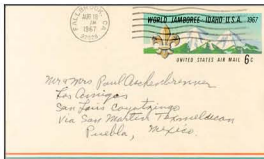 FALLBROOK, CA.
AUG 18
PM
1967
WORLD JAMBOREE IDAHO U.S.A. 1967
UNITED STATES AIR MAIL 6c
Mr & Mrs Paul Aschenbrenner
Los Amigos
San Luis Coyotzingo
Via San Martin Texmelucan
Puebla, Mexico